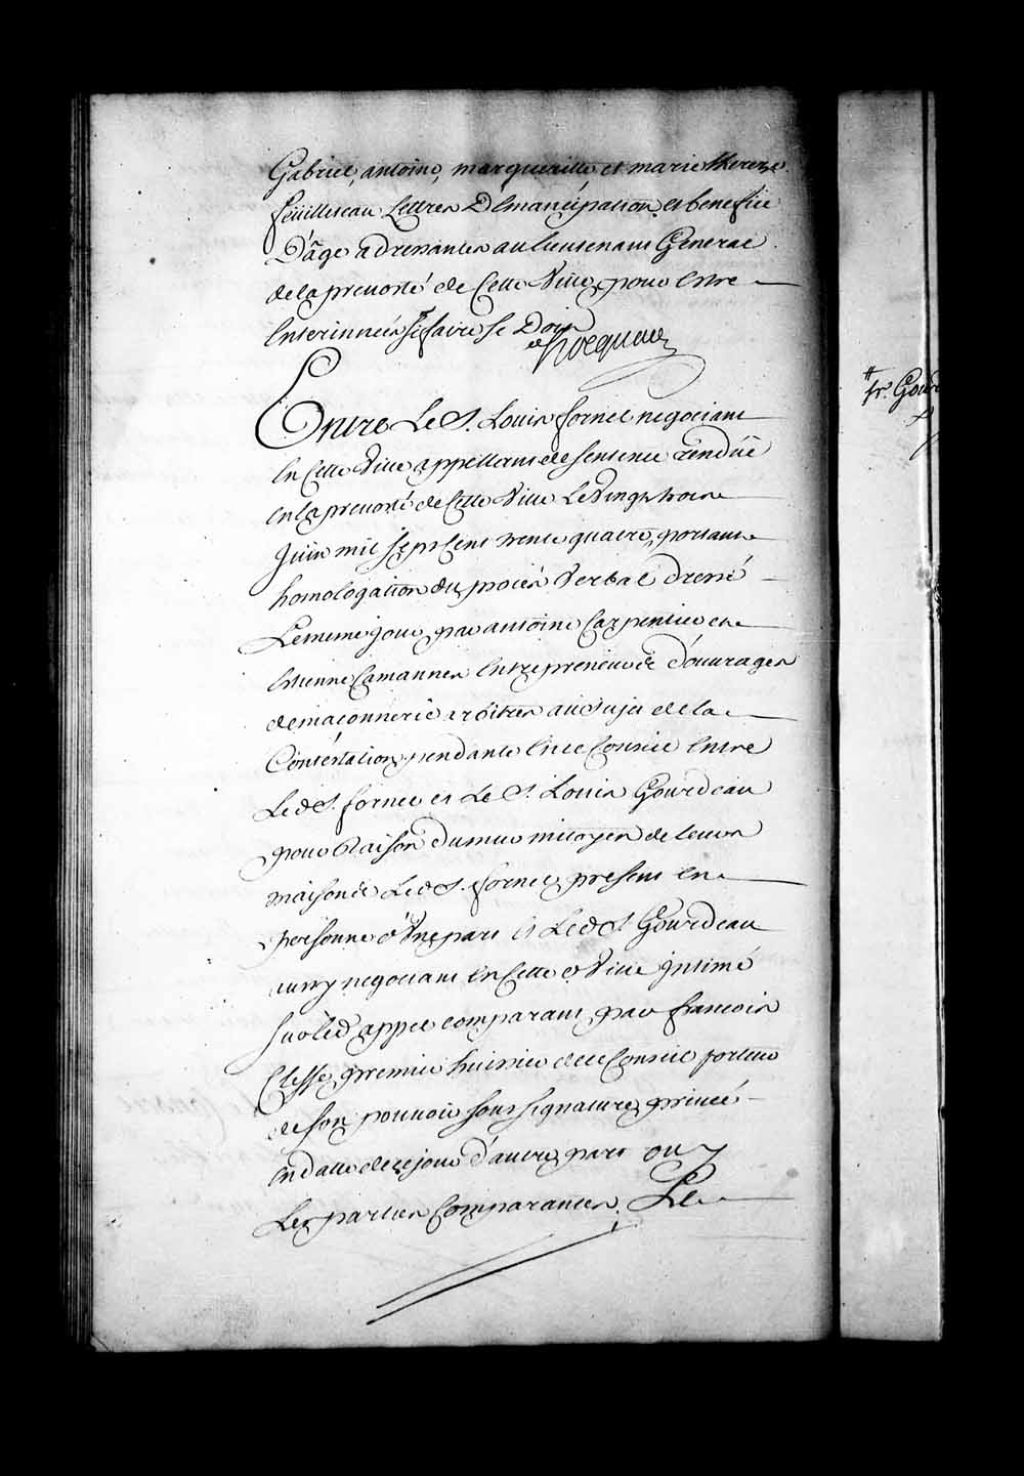 Gabriel, antoine, margueritte et marie therese
feüilleteau Lettres D'Emancipation et benefice
D'âge adressantes au lieutenant General
de la prevosté de Cette Ville, pour Estre
Enterinnées si faire se Doit
Hocquart
Entre Le S. Louis fornel negociant
En Cette Ville appellant de sentence rendüe
en la prevosté de Cette Ville Le Vingt trois
Juin mil sept Cent trente quatre, portant
homologation du procés Verbal dressé
Le meme jour par antoine Carpentier et
Estienne Entrepreneurs d'ouvrages
de maconnerie arbitres au sujet de la
Contestation pendante En ce Conseil Entre
Led. S. fornel et Le S. Louis Gourdeau
pour Raison du mur mitoyen de leurs
maisons Led. S. fornel present en
personne d'Une part Et Led S. Gourdeau
aussy negociant En Cette d. Ville Intimé
sur led. appel comparant par francois
Clesse premier huissier de ce Conseil porteur
de son pouvoir sous signature privée
en datte de ce jour d'autre part ouy
Les parties Comparantes. Le
fr. Gour